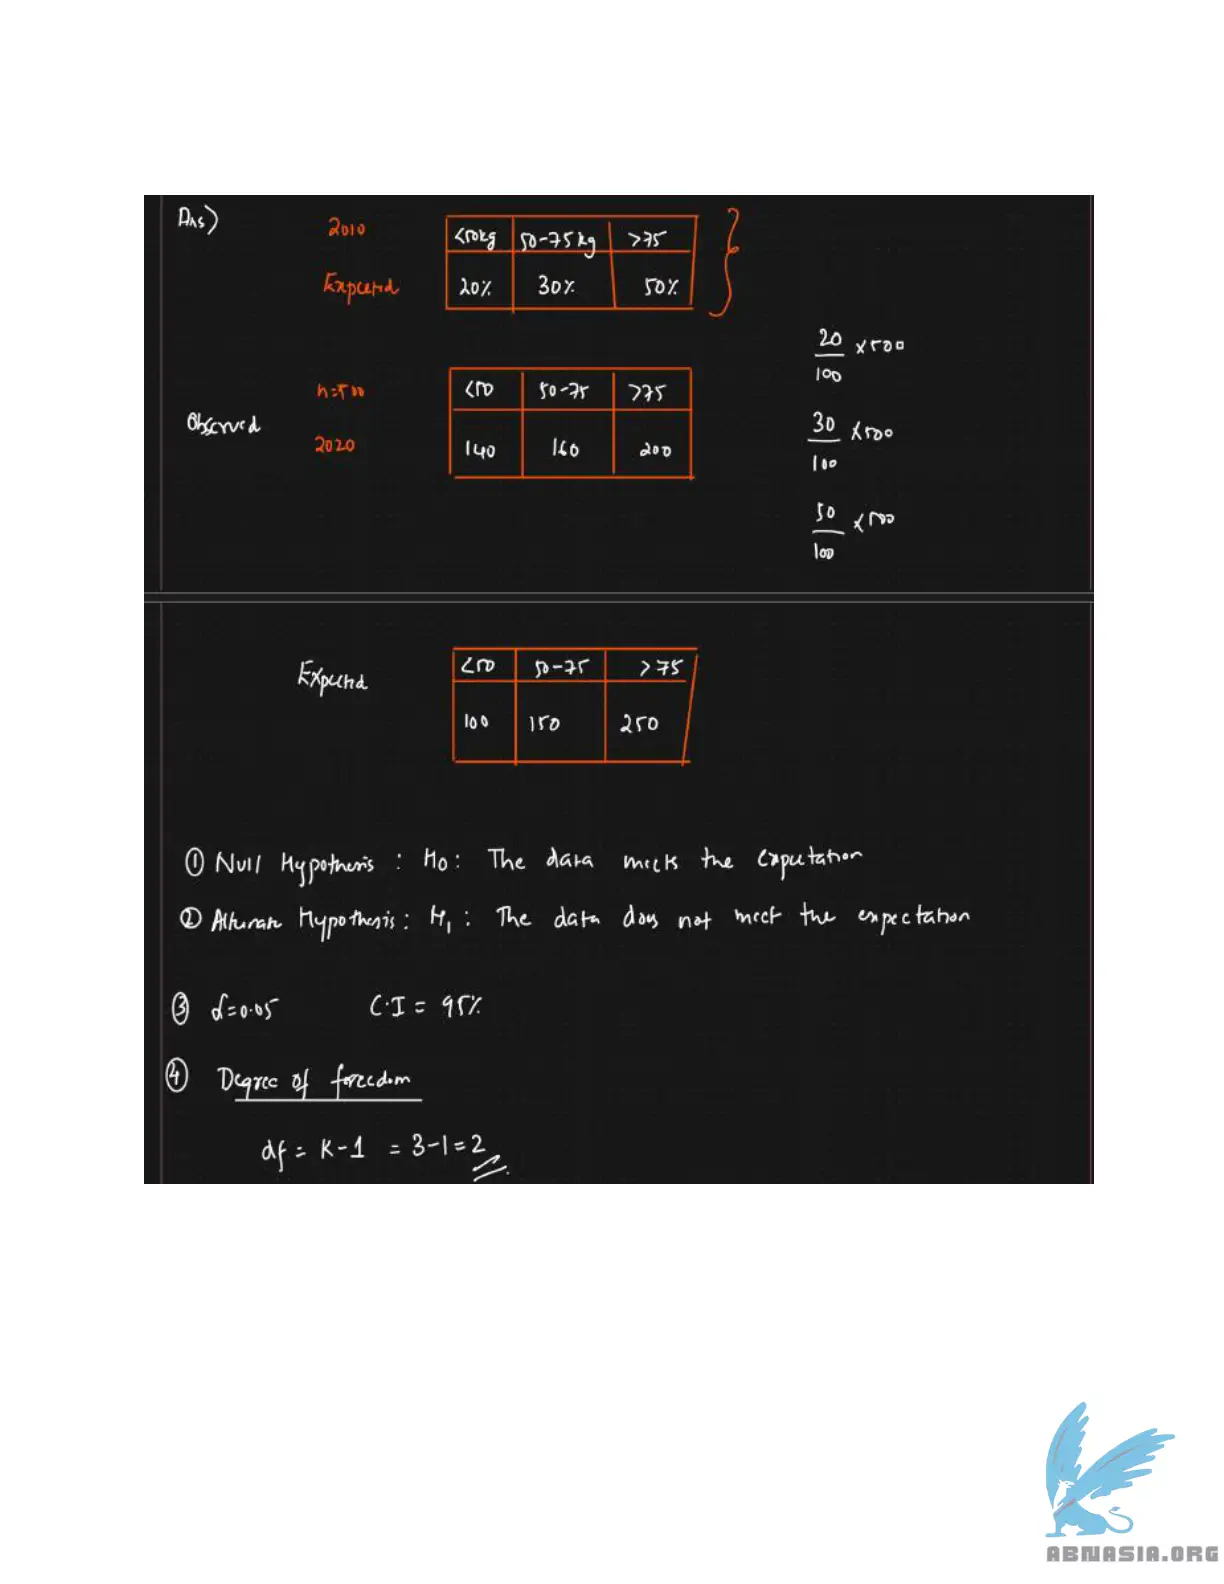 Ans)
2010
<50kg 50-75kg >75
Expected
20% 30% 50%
20/100 × 500
n=500
<50 50-75 >75
Observed
2020
140 160 200
30/100 × 500
50/100 × 500
Expected
<50 50-75 >75
100 150 250
① Null Hypothesis : H0 : The data meets the expectation
② Alternate Hypothesis : H1 : The data does not meet the expectation
③ α=0.05 C.I = 95%
④ Degree of freedom
df = k-1 = 3-1 = 2
ABNASIA.ORG